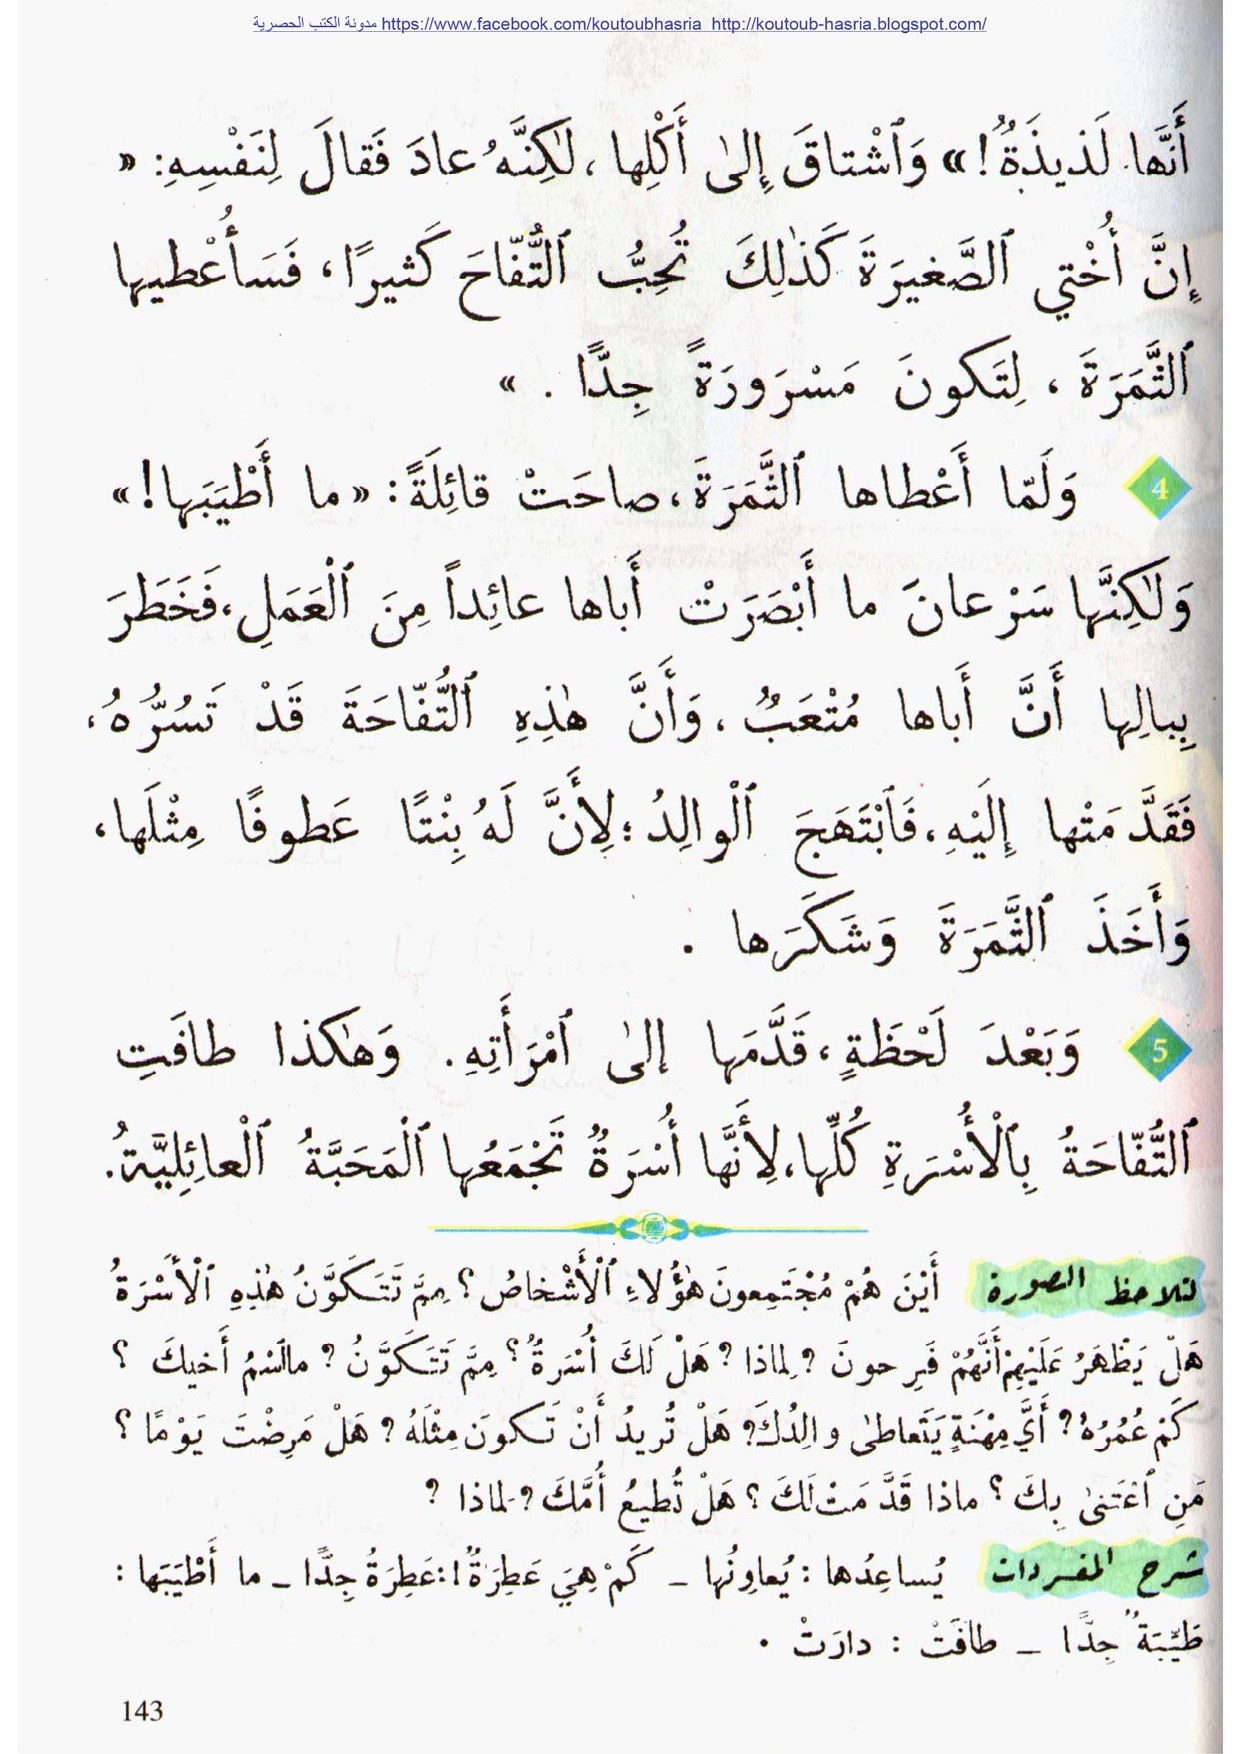 مدونة الكتب الحصرية https://www.facebook.com/koutoubhasria http://koutoub-hasria.blogspot.com/
أَنَّها لَذيذَةٌ! » وَٱشْتاقَ إِلىٰ أَكْلِها ، لٰكِنَّهُ عادَ فَقالَ لِنَفْسِهِ: «
إِنَّ أُخْتي ٱلصَّغيرَةَ كَذٰلِكَ تُحِبُّ ٱلتُّفّاحَ كَثيرًا ، فَسَأُعْطيها
ٱلثَّمَرَةَ ، لِتَكونَ مَسْرَورَةً جِدًّا . »
4 وَلَمّا أَعْطاها ٱلثَّمَرَةَ ، صاحَتْ قائِلَةً : « ما أَطْيَبَها! »
وَلٰكِنَّها سَرْعانَ ما أَبْصَرَتْ أَباها عائِداً مِنَ ٱلْعَمَلِ ، فَخَطَرَ
بِبالِها أَنَّ أَباها مُتْعَبٌ ، وَأَنَّ هٰذِهِ ٱلتُّفّاحَةَ قَدْ تَسُرُّهُ ،
فَقَدَّمَتْها إِلَيْهِ ، فَٱبْتَهَجَ ٱلْوالِدُ ؛ لِأَنَّ لَهُ بِنْتًا عَطوفًا مِثْلَها ،
وَأَخَذَ ٱلثَّمَرَةَ وَشَكَرَها .
5 وَبَعْدَ لَحْظَةٍ ، قَدَّمَها إِلىٰ ٱمْرَأَتِهِ . وَهٰكذا طافَتِ
ٱلتُّفّاحَةُ بِٱلْأُسْرَةِ كُلِّها ، لِأَنَّها أُسْرَةٌ تَجْمَعُها ٱلْمَحَبَّةُ ٱلْعائِلِيَّةُ .
لنلاحظ الصورة أَيْنَ هُمْ مُجْتَمِعونَ هٰؤُلاءِ ٱلْأَشْخاصُ ؟ مِمَّ تَتَكَوَّنُ هٰذِهِ ٱلْأُسْرَةُ
هَلْ يَظْهَرُ عَلَيْهِمْ أَنَّهُمْ فَرِحونَ ؟ لِماذا ؟ هَلْ لَكَ أُسْرَةٌ ؟ مِمَّ تَتَكَوَّنُ ؟ ماٱسْمُ أَخيكَ ؟
كَمْ عُمُرُهُ ؟ أَيَّ مِهْنَةٍ يَتَعاطىٰ والِدُكَ ؟ هَلْ تُريدُ أَنْ تَكونَ مِثْلَهُ ؟ هَلْ مَرِضْتَ يَوْمًا ؟
مَنِ ٱعْتَنىٰ بِكَ ؟ ماذا قَدَّمَتْ لَكَ ؟ هَلْ تُطيعُ أُمَّكَ ؟ لماذا ؟
شرح المفردات يُساعِدُها : يُعاوِنُها – كَمْ هِيَ عَطِرَةٌ! : عَطِرَةُ جِدًّا – ما أَطْيَبَها :
طَيِّبَةٌ جِدًّا – طافَتْ : دارَتْ .
143